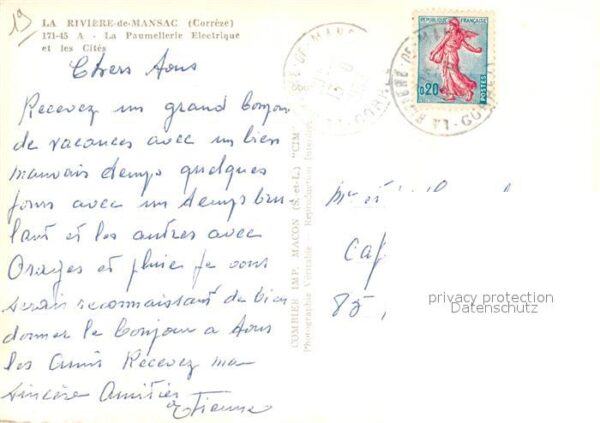 19
LA RIVIÈRE-de-MANSAC (Corrèze)
171-45 A - La Paumellerie Electrique
et les Cités
Chers Tous
Recevez un grand bonjour
de vacances avec un bien
mauvais temps quelques
jours avec un temps bru
lant et les autres avec
Orages et pluie je vous
serais reconnaissant de bien
donner le bonjour a tous
les amis Recevez ma
sincère Amitiés
Etienne
COMBIER IMP. MACON (S.-et-L.) "CIM"
Photographie Véritable - Reproduction Interdite
RÉPUBLIQUE FRANÇAISE
0,20
POSTES
Caf
85,
privacy protection
Datenschutz